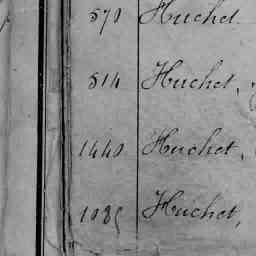 570 Huchet
514 Huchet,
1440 Huchet,
1085 Huchet,